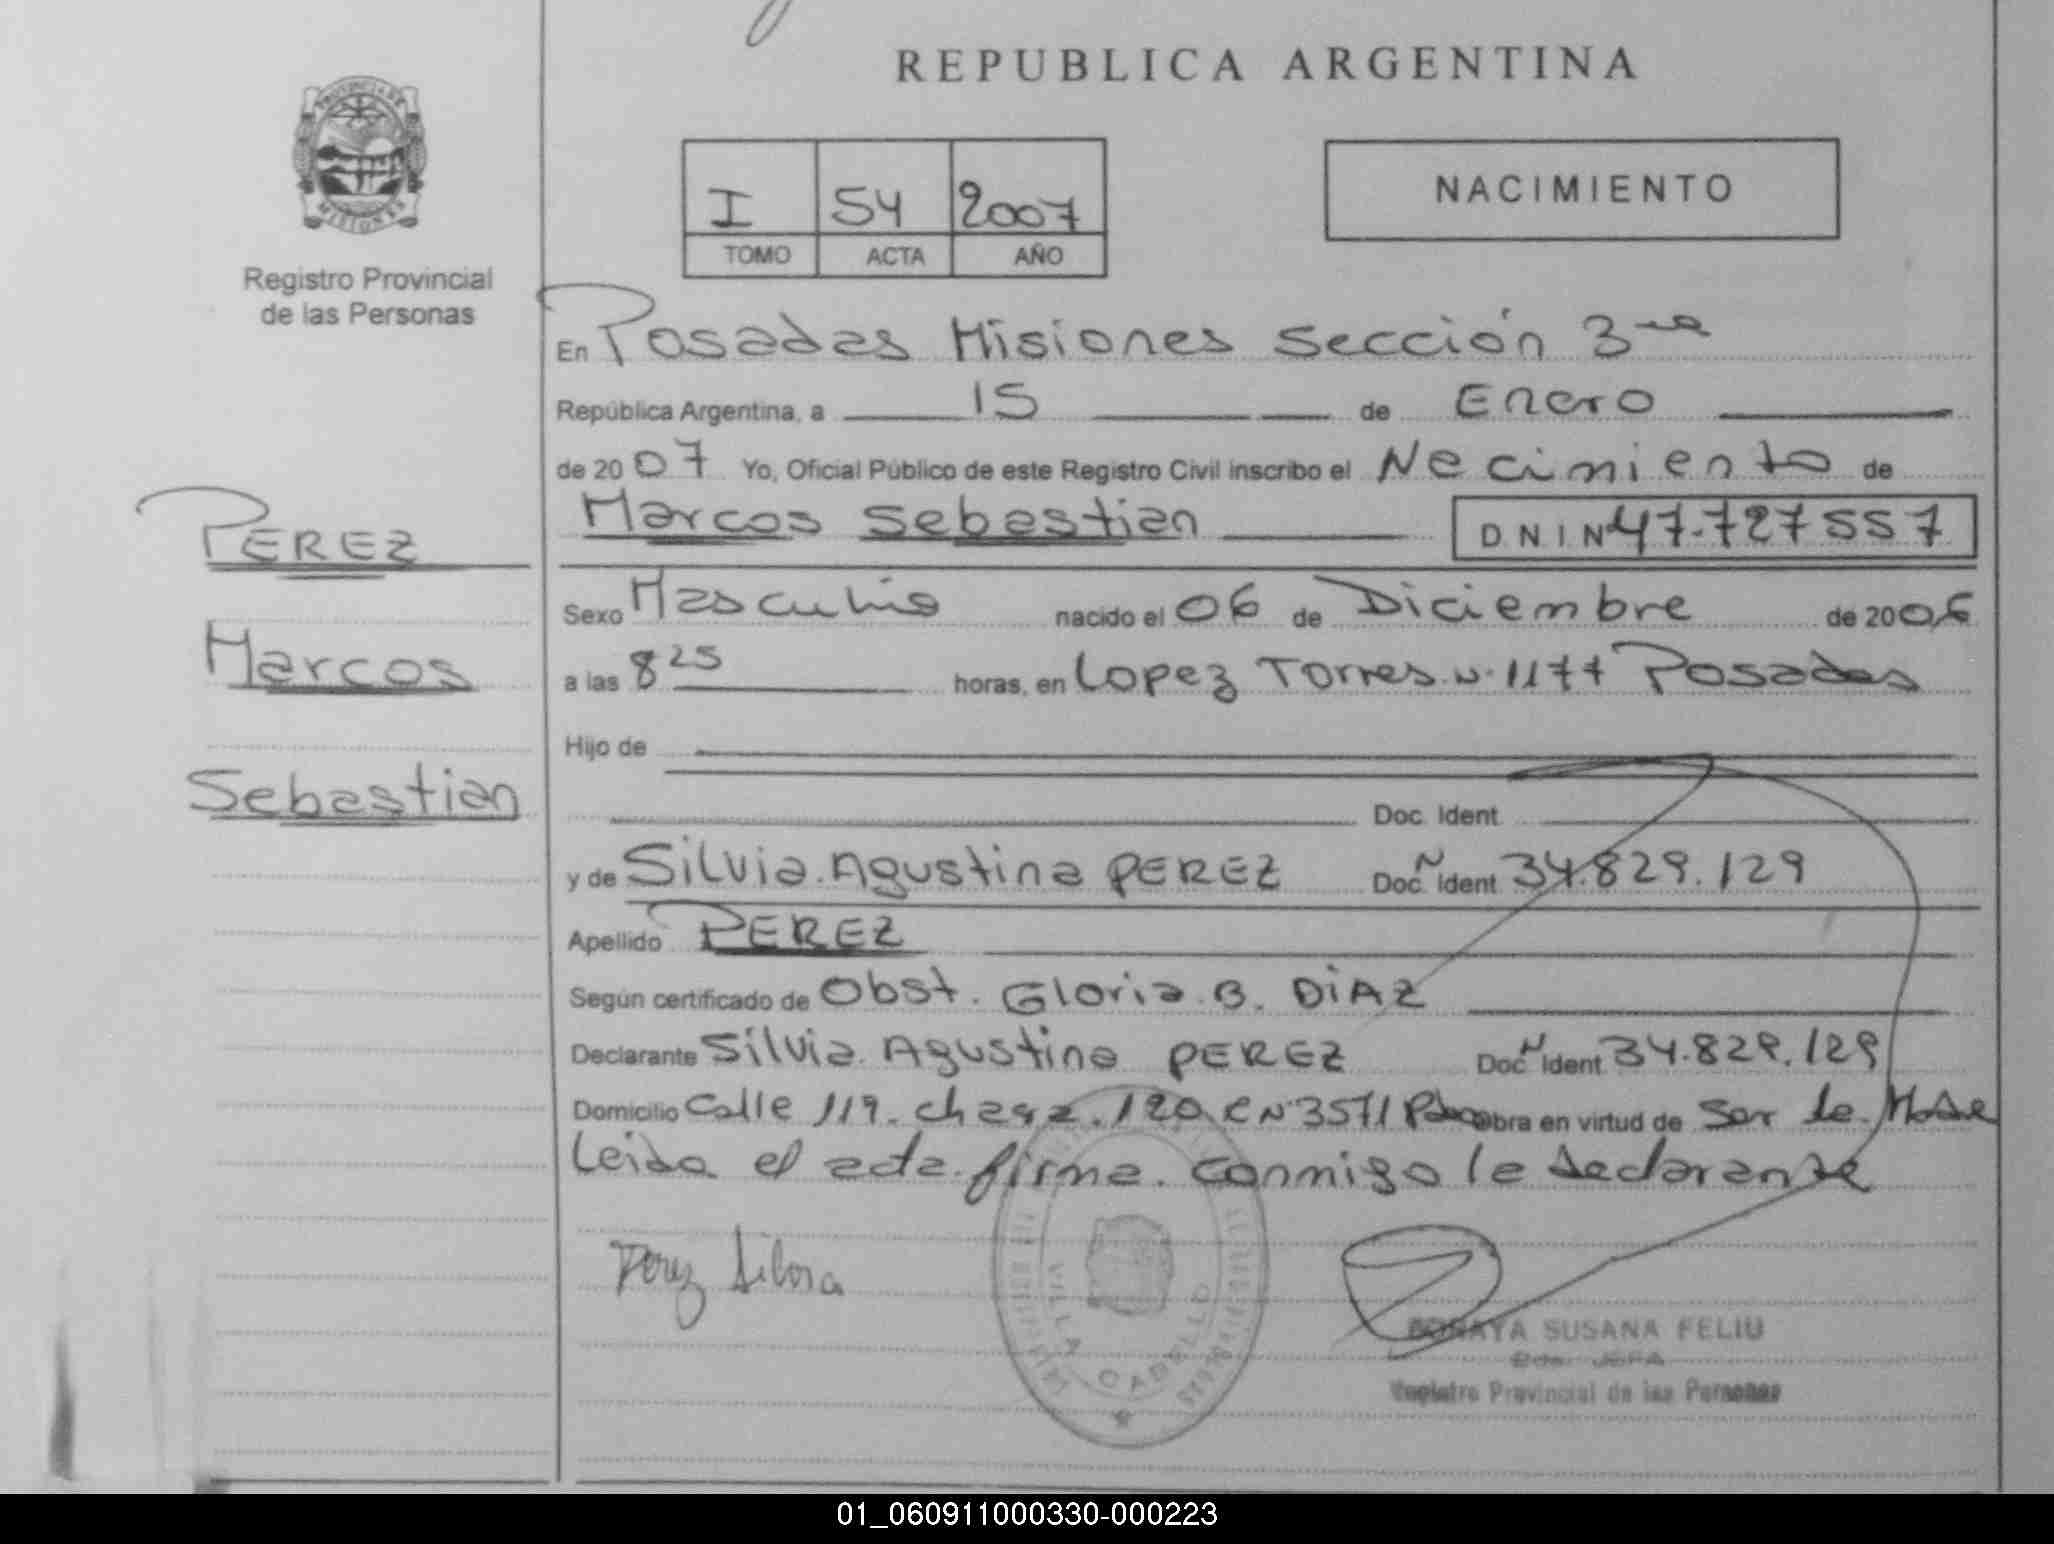 REPUBLICA ARGENTINA
PROVINCIA DE
MISIONES
Registro Provincial
de las Personas
I 54 2007
TOMO ACTA AÑO
NACIMIENTO
En Posadas Misiones Sección 3ra
República Argentina, a 15 de Enero
de 2007 Yo, Oficial Público de este Registro Civil inscribo el Nacimiento de
Marcos Sebastian D.N.I.Nº 47.727557
PEREZ
Marcos
Sebastian
Sexo Masculino nacido el 06 de Diciembre de 2006
a las 8 25 horas, en Lopez Torres Nº 1177 Posadas
Hijo de
Doc. Ident.
y de Silvia Agustina PEREZ Doc. N Ident. 34.829.129
Apellido PEREZ
Según certificado de Obst. Gloria B. DiAZ
Declarante Silvia Agustina PEREZ Doc. N Ident. 34.829.129
Domicilio Calle 119. chacra 120 C Nº 3571 obra en virtud de Ser la Madre
Leida el acta firma conmigo la declarante
Perez Silvia
VILLA CABELLO
SORAYA SUSANA FELIU
JEFA
Registro Provincial de las Personas
01_060911000330-000223